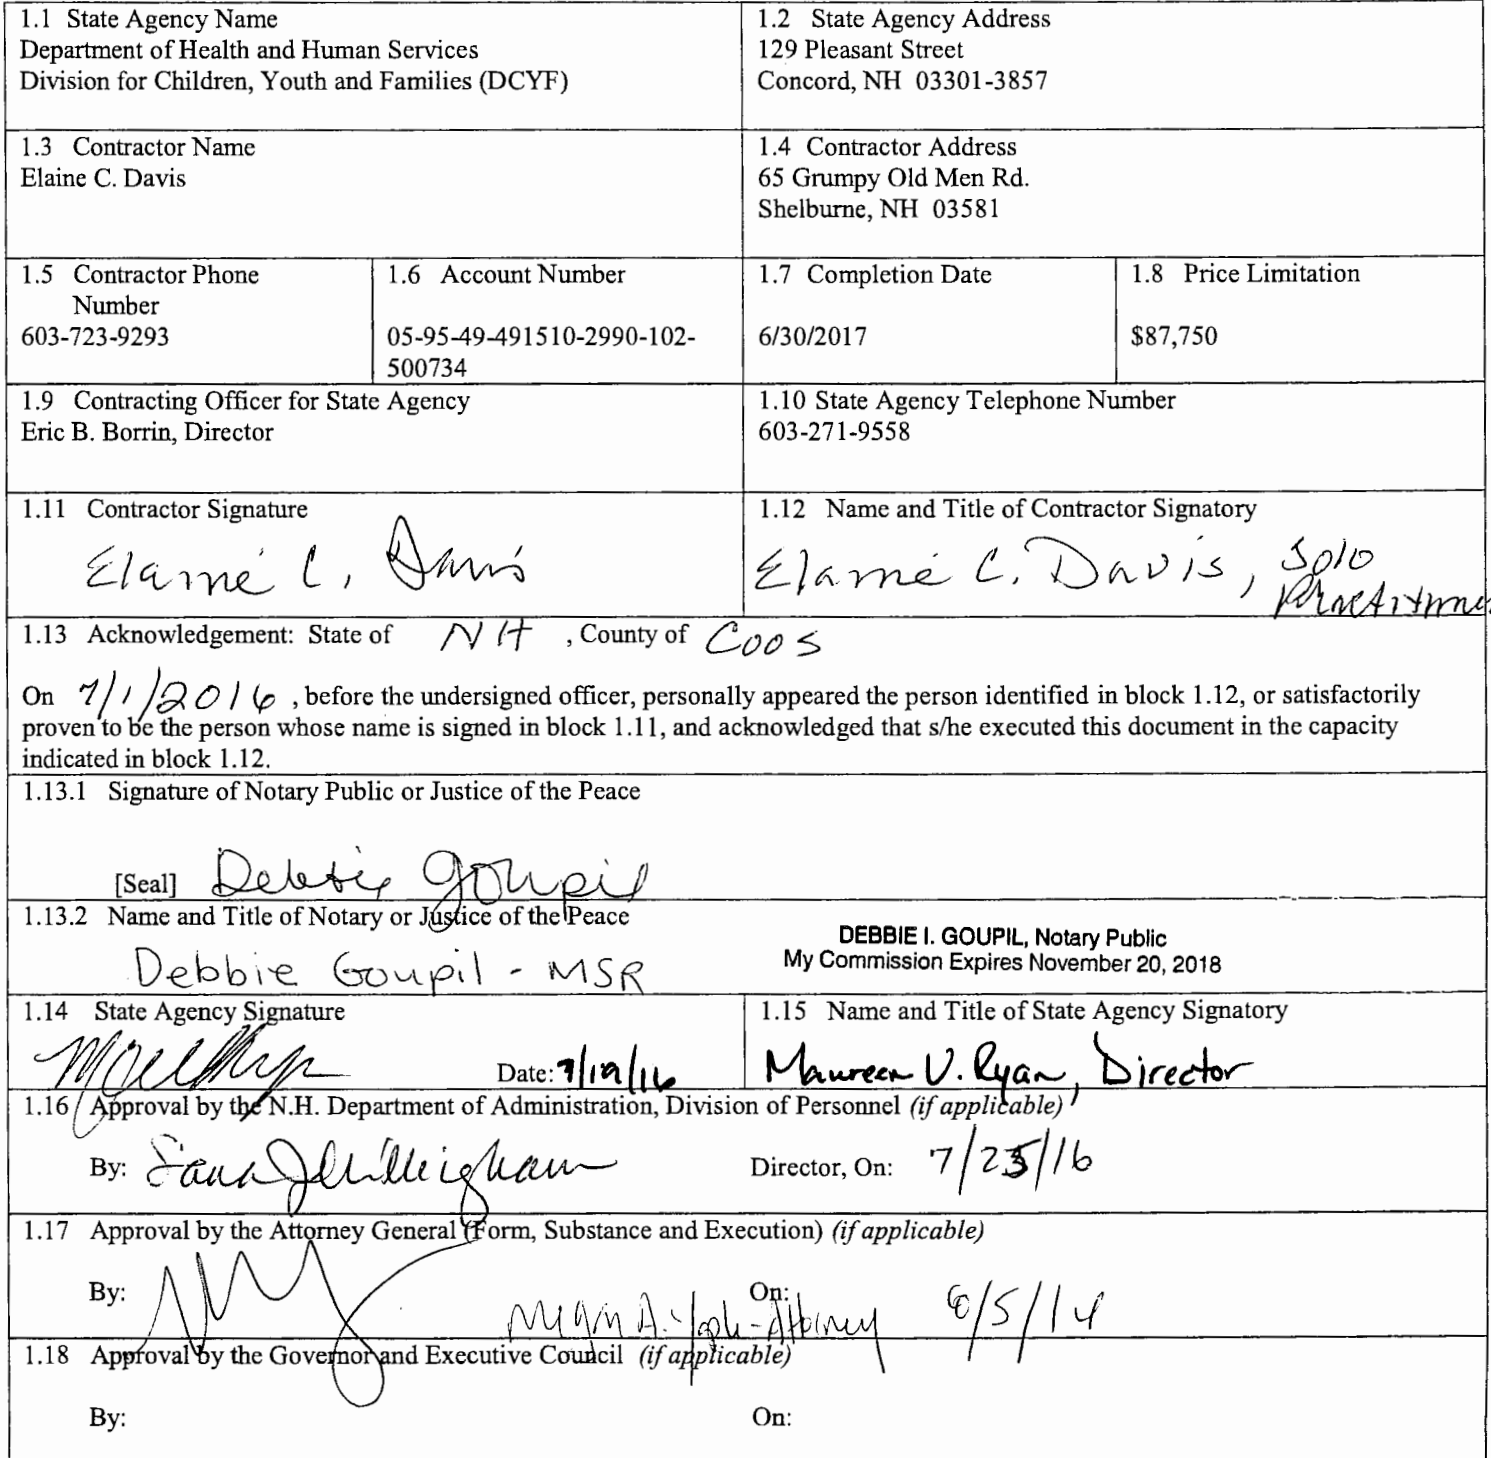 1.1 State Agency Name
Department of Health and Human Services
Division for Children, Youth and Families (DCYF)
1.2 State Agency Address
129 Pleasant Street
Concord, NH 03301-3857
1.3 Contractor Name
Elaine C. Davis
1.4 Contractor Address
65 Grumpy Old Men Rd.
Shelburne, NH 03581
1.5 Contractor Phone
Number
603-723-9293
1.6 Account Number
05-95-49-491510-2990-102-
500734
1.7 Completion Date
6/30/2017
1.8 Price Limitation
$87,750
1.9 Contracting Officer for State Agency
Eric B. Borrin, Director
1.10 State Agency Telephone Number
603-271-9558
1.11 Contractor Signature
Elaine C. Davis
1.12 Name and Title of Contractor Signatory
Elaine C. Davis, Solo
Practitioner
1.13 Acknowledgement: State of NH , County of Coos
On 7/1/2016 , before the undersigned officer, personally appeared the person identified in block 1.12, or satisfactorily
proven to be the person whose name is signed in block 1.11, and acknowledged that s/he executed this document in the capacity
indicated in block 1.12.
1.13.1 Signature of Notary Public or Justice of the Peace
[Seal] Debbie Goupil
1.13.2 Name and Title of Notary or Justice of the Peace
Debbie Goupil - MSR
DEBBIE I. GOUPIL, Notary Public
My Commission Expires November 20, 2018
1.14 State Agency Signature
Date: 7/19/16
1.15 Name and Title of State Agency Signatory
Maureen U. Ryan, Director
1.16 Approval by the N.H. Department of Administration, Division of Personnel (if applicable)
By: Director, On: 7/25/16
1.17 Approval by the Attorney General (Form, Substance and Execution) (if applicable)
By: Attorney On:
1.18 Approval by the Governor and Executive Council (if applicable)
By: On: